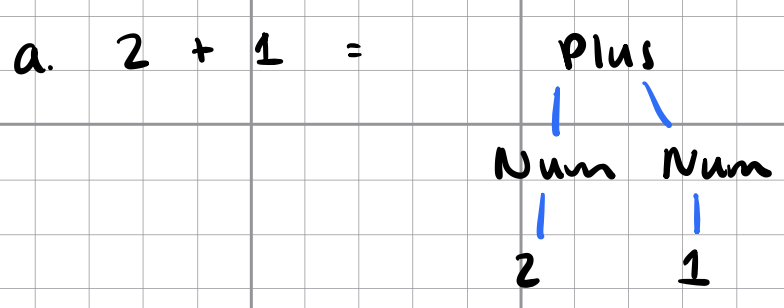 a. 2 + 1 = Plus
Num Num
2 1